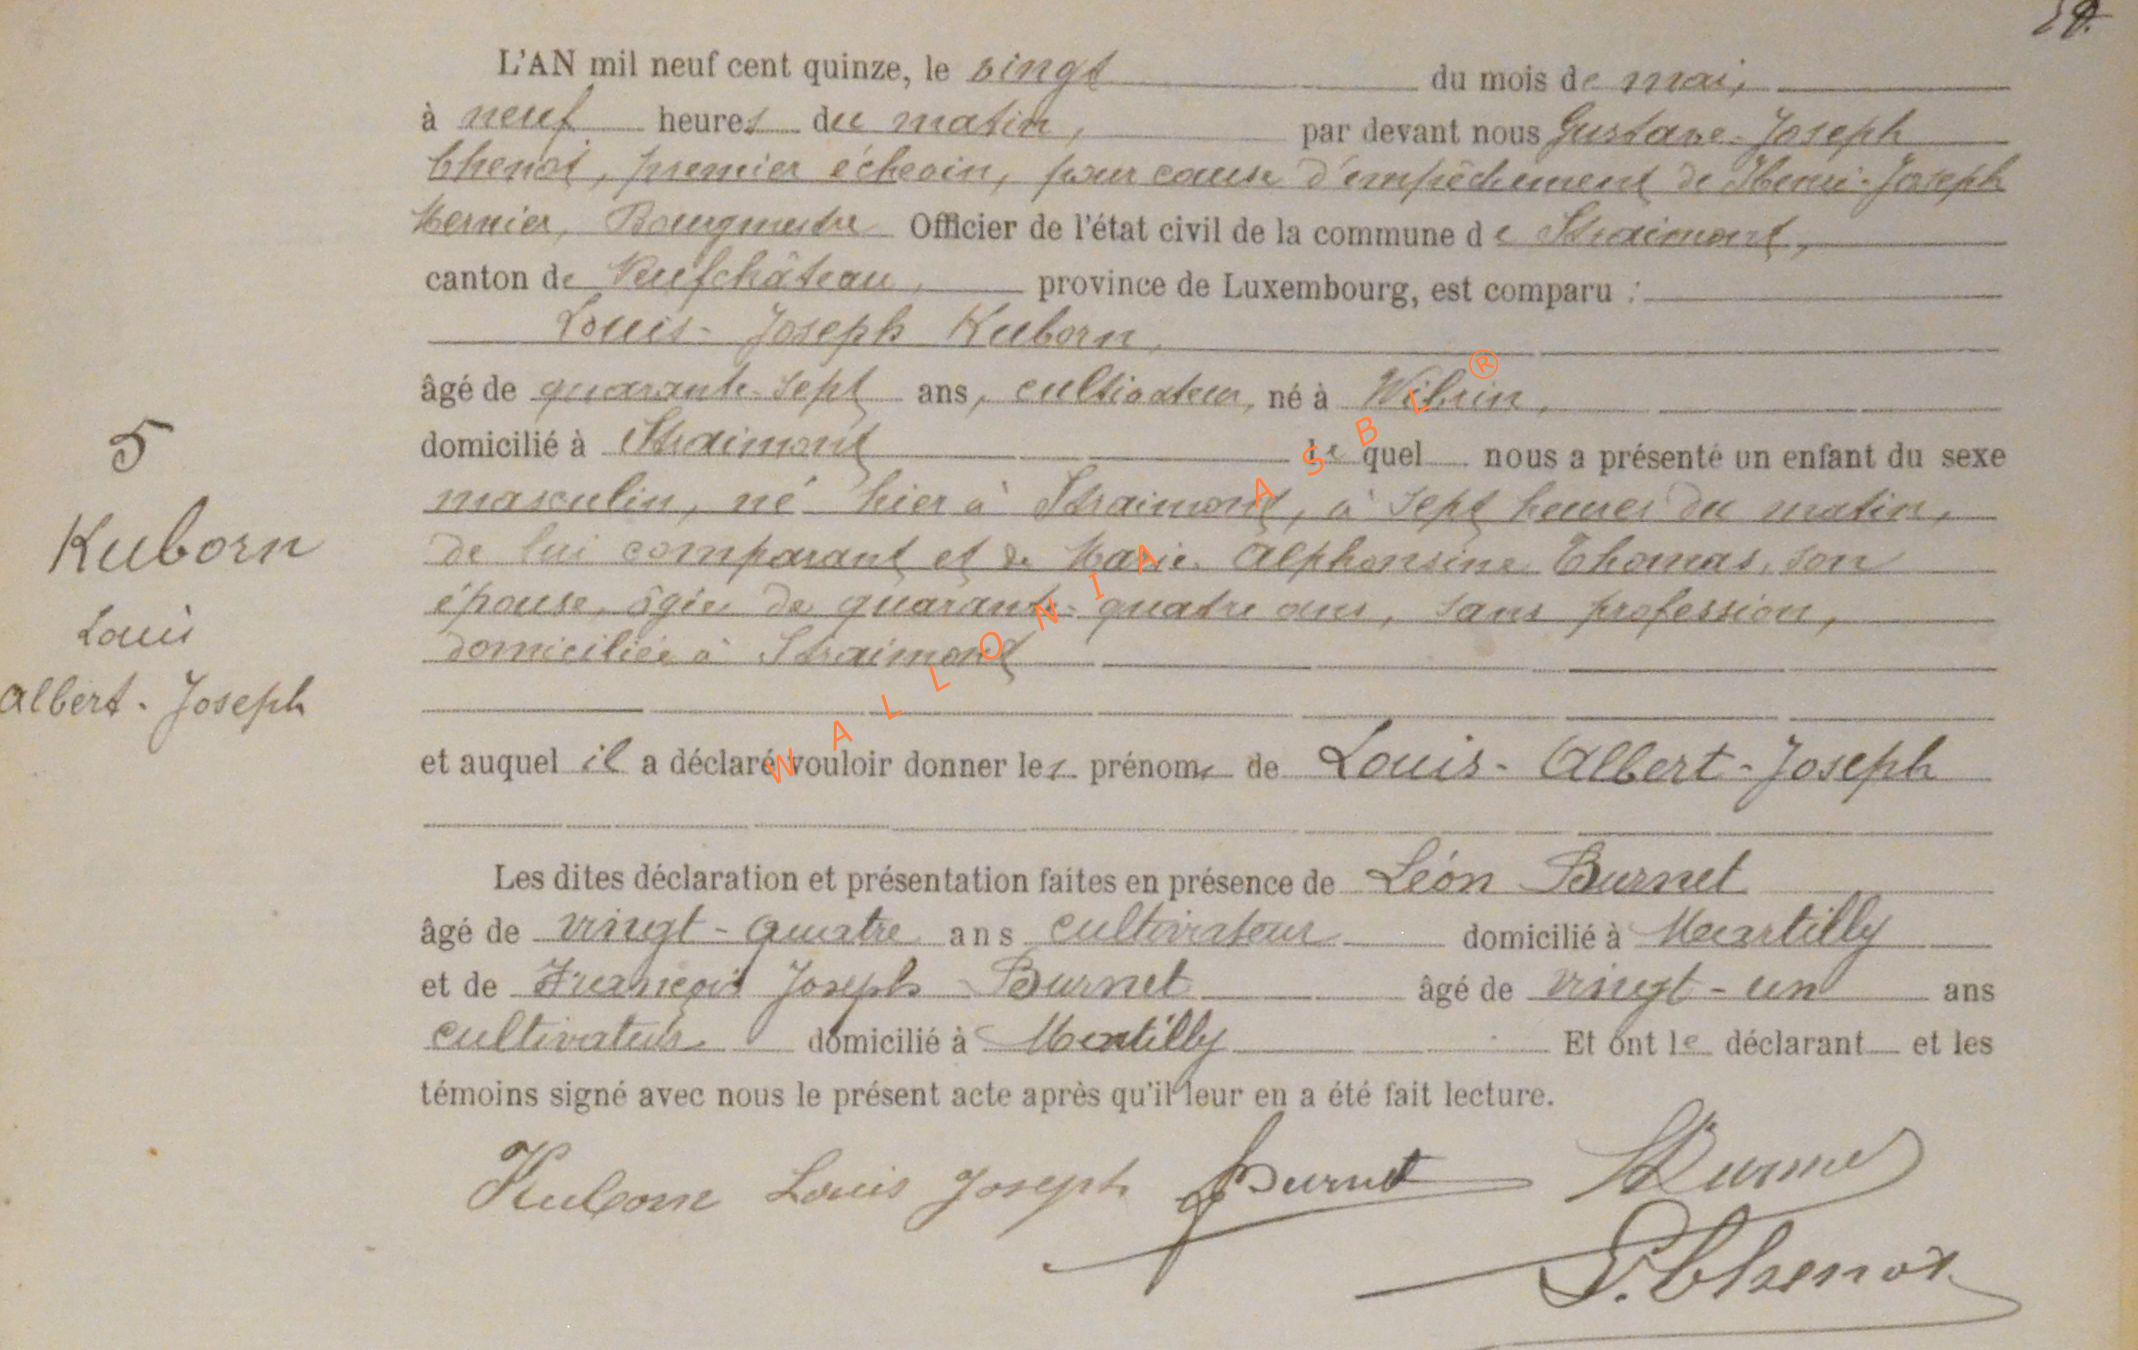 L'AN mil neuf cent quinze, le vingt du mois de mai,
à neuf heures du matin, par devant nous Gustave-Joseph
Chenot, premier échevin, pour cause d'empêchement de Henri-Joseph
Mernier, Bourgmestre Officier de l'état civil de la commune de Straimont,
canton de Neufchâteau, province de Luxembourg, est comparu :
Louis-Joseph Kuborn,
âgé de quarante-sept ans, cultivateur, né à Wibrin,
domicilié à Straimont lequel nous a présenté un enfant du sexe
masculin, né hier à Straimont, à sept heures du matin,
de lui comparant et de Marie-Alphonsine Thomas, son
épouse, âgée de quarante-quatre ans, sans profession,
domiciliée à Straimont
et auquel il a déclaré vouloir donner les prénoms de Louis-Albert-Joseph
Les dites déclaration et présentation faites en présence de Léon Burnet
âgé de vingt-quatre ans cultivateur domicilié à Martilly
et de François Joseph Burnet âgé de vingt-un ans
cultivateur domicilié à Martilly Et ont le déclarant et les
témoins signé avec nous le présent acte après qu'il leur en a été fait lecture.
Kuborn Louis Joseph Burnet LBurnet
G. Chenot
5
Kuborn
Louis
Albert-Joseph
WALLONIA ASBL ®